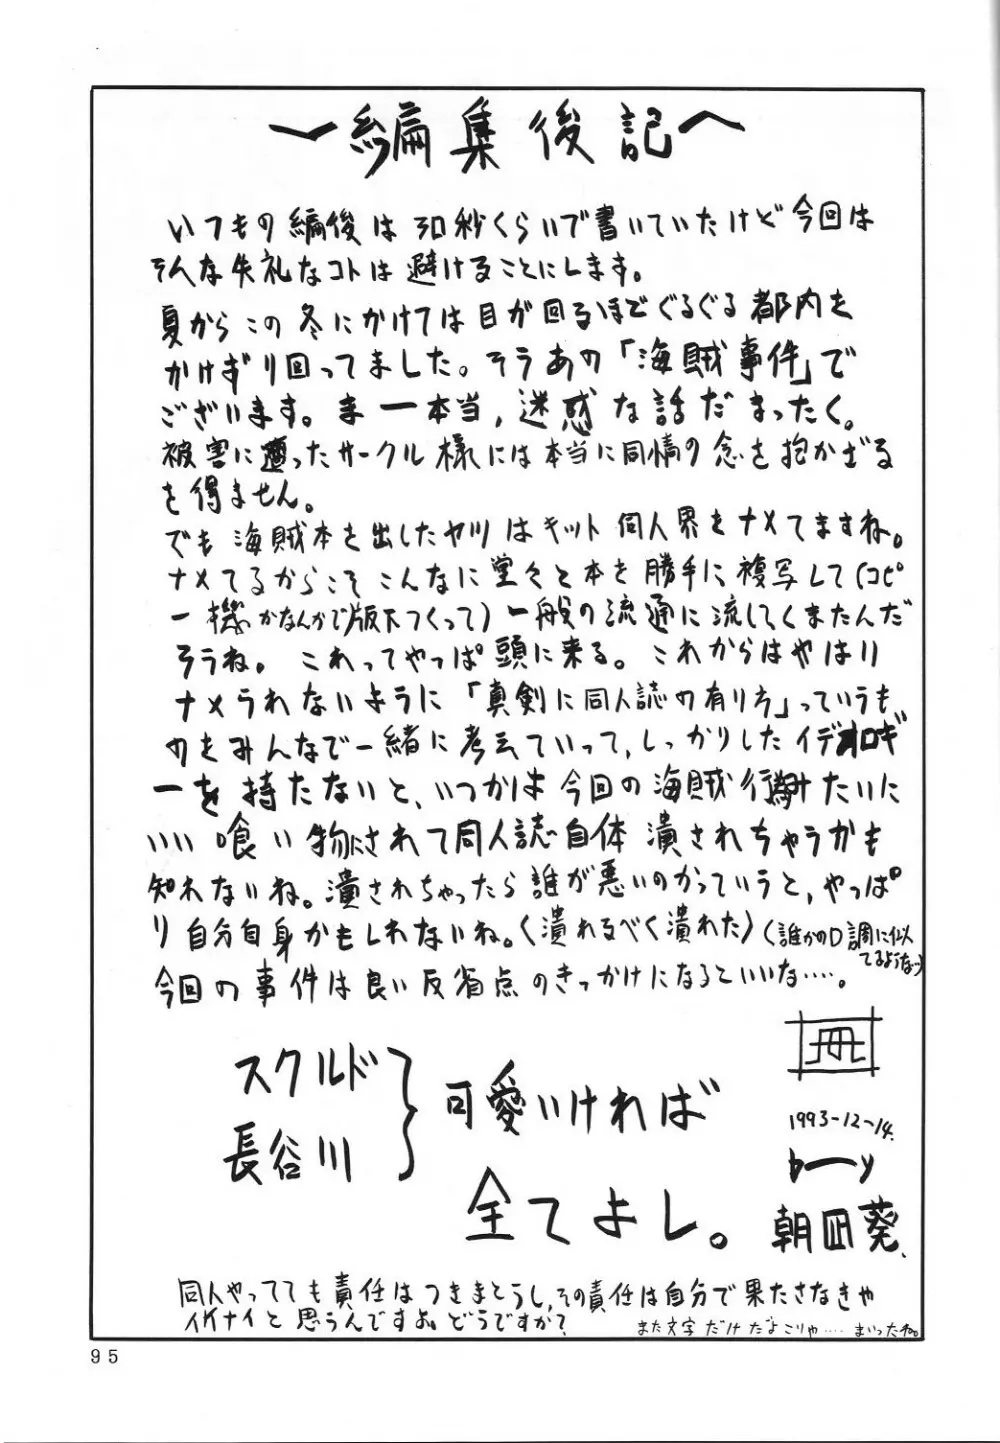 〜編集後記〜
いつもの編後は30秒くらいで書いていたけど今回は
そんな失礼なコトは避けることにします。
夏からこの冬にかけては目が回るほどぐるぐる都内を
かけずり回ってました。そうあの「海賊事件」で
ございます。まー本当,迷惑な話だまったく。
被害に遭ったサークル様には本当に同情の念を抱かざる
を得ません。
でも海賊本を出したヤツはキット同人界をナメてますね。
ナメてるからこそこんなに堂々と本を勝手に複写して(コピ
ー機かなんかで版下つくって)一般の流通に流してくまたんだ
そうね。これってやっぱ頭に来る。これからはやはり
ナメられないように「真剣に同人誌の有り方」っていうも
のをみんなで一緒に考えていって,しっかりしたイデオロギ
ーを持たないと、いつかは今回の海賊行為みたいに
いい喰い物にされて同人誌自体潰されちゃうかも
知れないね。潰されちゃったら誰が悪いのかっていうと,やっぱ
り自分自身かもしれないね。〈潰れるべく潰れた〉(誰かのD調に似
てるようなっ)
今回の事件は良い反省点のきっかけになるといいな……。
スクルド
長谷川
}可愛いければ
全てよし。
1993-12-14.
b—y
朝凪葵.
同人やってても責任はつきまとうし,その責任は自分で果たさなきゃ
イケナイと思うんですよ。どうですか?
また文字だけだよこりゃ……まいったね。
95